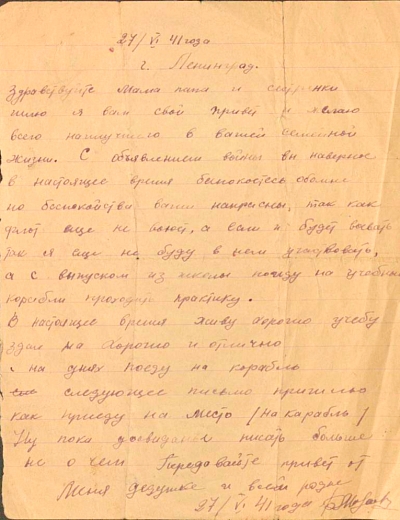 27/VI 41 года
г. Ленинград.
Здравствуйте Мама папа и сестренки
шлю я вам свой привет и желаю
всего наилучшего в вашей семейной
жизни. С объявлением войны вы наверное
в настоящее время беспокоетесь обо мне
но беспокойства ваши напрасны, так как
флот еще не воюет, а если и будет воевать
так я еще не буду в нем участвовать,
а с выпуском из школы поеду на учебный
корабль проходить практику.
В настоящее время живу хорошо учебу
сдаю на хорошо и отлично
на днях поеду на корабль
следующее письмо пришлю
как приеду на место /на карабль/
Ну пока досвидания писать больше
не о чем Передавайте привет от
Меня дедушке и всей родне
27/VI 41 года